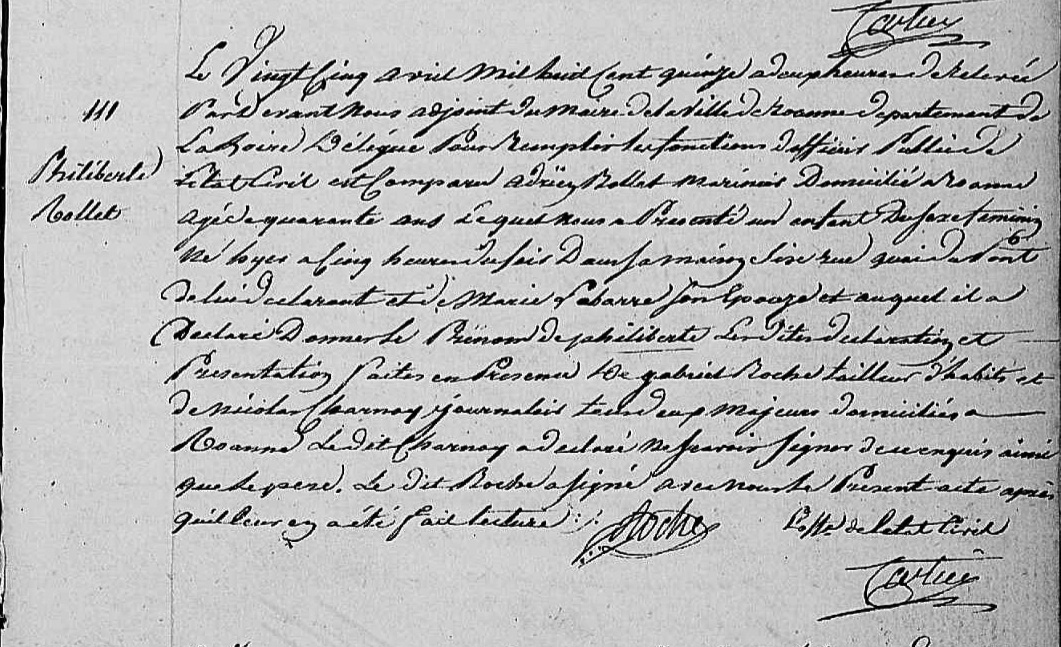 Cartier
Le Vingt Cinq avril Mil huit Cent quinze a deux heures de Relevée
111
Pardevant Nous adjoint du Maire de la Ville de Roanne departement de
La Loire Délégué Pour Remplir les fonctions d'officier Public de
Philiberte
L'Etat Civil est Comparu Rollet Marinier Domicilié a Roanne
Rollet
agé de quarante ans Lequel Nous a Presenté un enfant Du Sexe feminin
Né hyer a Cinq heures du soir Dans sa maison Sise rue quai du Pont 6
de lui declarant et de Marie Labarre son Epouze et auquel il a
Declaré Donner le Prénom de philiberte Les dites declaration et
Presentation faites en Presence de gabriel Roche tailleur d'habits et
de Nicolas Charnay journalier tous deux Majeurs domiciliés a
Roanne Le dit Charnay a declaré Ne Scavoir Signer de ce enquis ainsi
que le pere. Le dit Roche a signé avec Nous le Present acte après
qu'il leur en a été fait lecture ./.
Roche
L'off. de l'etat Civil
Cartier